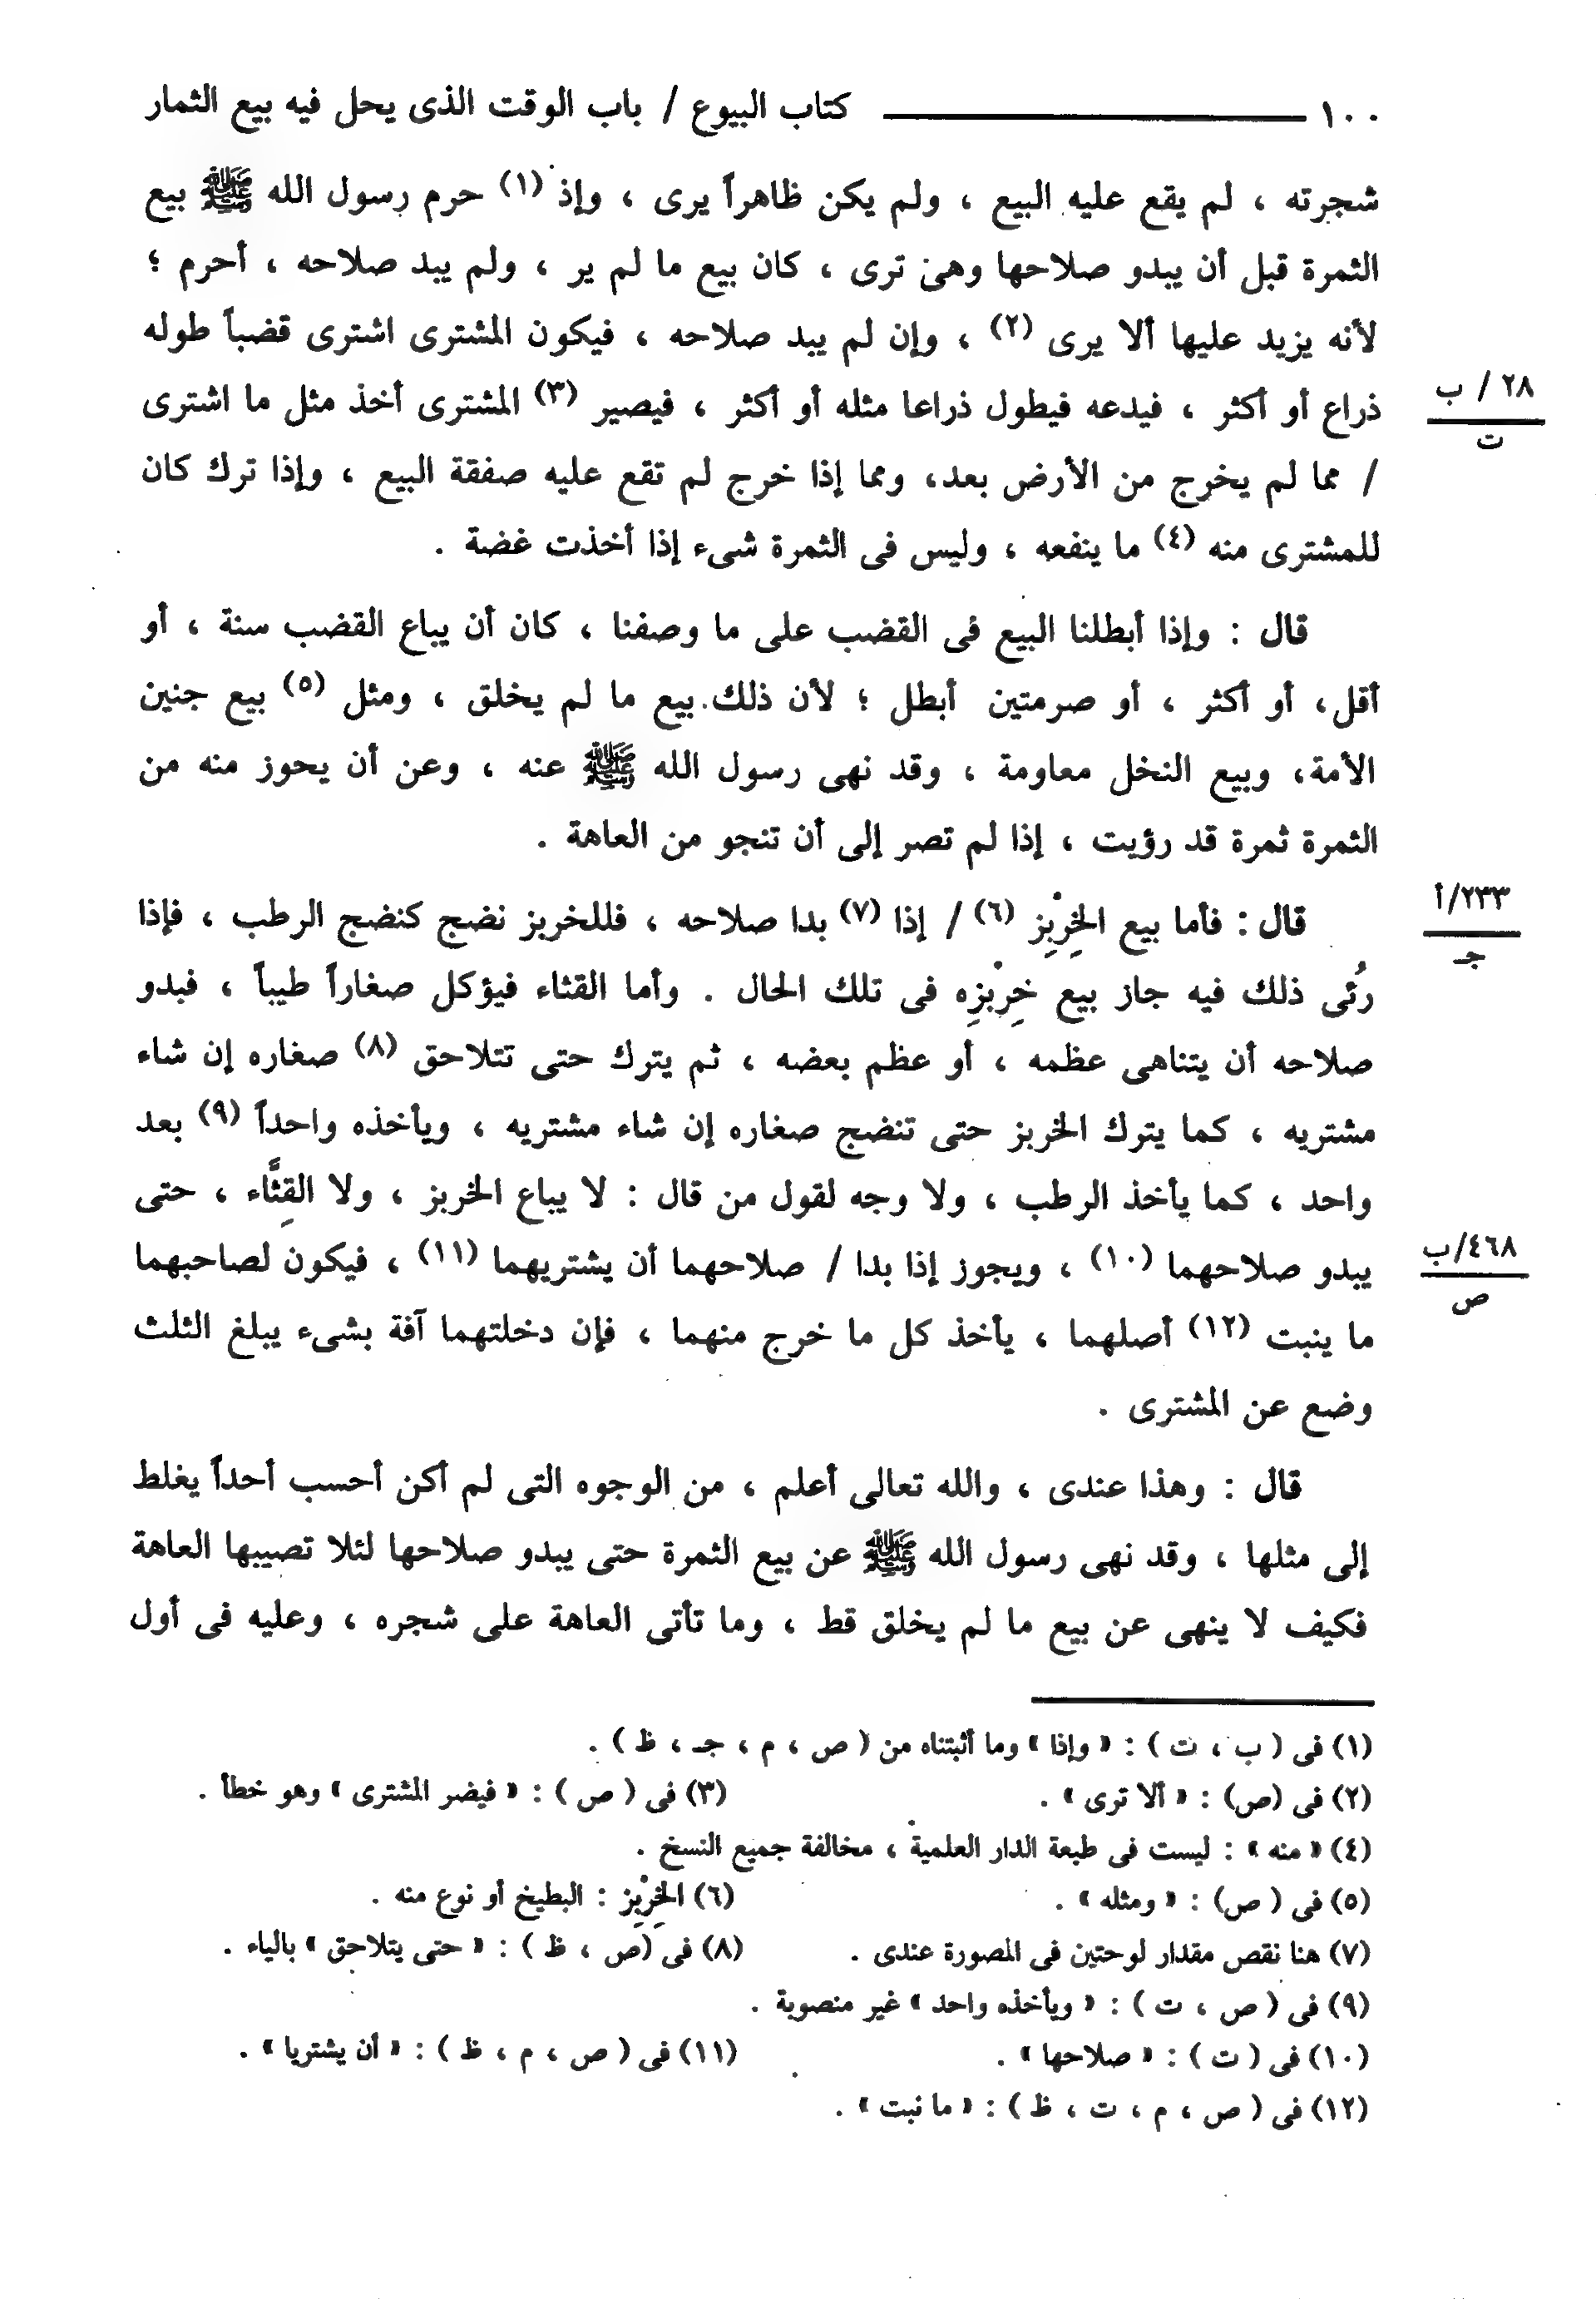 ١٠٠ كتاب البيوع / باب الوقت الذى يحل فيه بيع الثمار
شجرته ، لم يقع عليه البيع ، ولم يكن ظاهراً يرى ، وإذ (١) حرم رسول الله ﷺ بيع
الثمرة قبل أن يبدو صلاحها وهى ترى ، كان بيع ما لم ير ، ولم يبد صلاحه ، أحرم ؛
لأنه يزيد عليها ألا يرى (٢) ، وإن لم يبد صلاحه ، فيكون المشترى اشترى قضباً طوله
ذراع أو أكثر ، فيدعه فيطول ذراعا مثله أو أكثر ، فيصير (٣) المشترى أخذ مثل ما اشترى
٢٨ / ب
ت
/ مما لم يخرج من الأرض بعد، ومما إذا خرج لم تقع عليه صفقة البيع ، وإذا ترك كان
للمشترى منه (٤) ما ينفعه ، وليس فى الثمرة شىء إذا أخذت غضة .
قال : وإذا أبطلنا البيع فى القضب على ما وصفنا ، كان أن يباع القضب سنة ، أو
أقل، أو أكثر ، أو صرمتين أبطل ؛ لأن ذلك بيع ما لم يخلق ، ومثل (٥) بيع جنين
الأمة، وبيع النخل معاومة ، وقد نهى رسول الله ﷺ عنه ، وعن أن يحوز منه من
الثمرة ثمرة قد رؤيت ، إذا لم تصر إلى أن تنجو من العاهة .
قال : فأما بيع الخِرْبِز (٦) / إذا (٧) بدا صلاحه ، فللخربز نضج كنضج الرطب ، فإذا
٢٣٣/أ
جـ
رُئى ذلك فيه جاز بيع خِرْبِزِه فى تلك الحال . وأما القثاء فيؤكل صغاراً طيباً ، فبدو
صلاحه أن يتناهى عظمه ، أو عظم بعضه ، ثم يترك حتى تتلاحق (٨) صغاره إن شاء
مشتريه ، كما يترك الخربز حتى تنضج صغاره إن شاء مشتريه ، ويأخذه واحداً (٩) بعد
واحد ، كما يأخذ الرطب ، ولا وجه لقول من قال : لا يباع الخربز ، ولا القِثَّاء ، حتى
يبدو صلاحهما (١٠) ، ويجوز إذا بدا / صلاحهما أن يشتريهما (١١) ، فيكون لصاحبهما
٤٦٨/ب
ص
ما ينبت (١٢) أصلهما ، يأخذ كل ما خرج منهما ، فإن دخلتهما آفة بشىء يبلغ الثلث
وضع عن المشترى .
قال : وهذا عندى ، والله تعالى أعلم ، من الوجوه التى لم أكن أحسب أحداً يغلط
إلى مثلها ، وقد نهى رسول الله ﷺ عن بيع الثمرة حتى يبدو صلاحها لئلا تصيبها العاهة
فكيف لا ينهى عن بيع ما لم يخلق قط ، وما تأتى العاهة على شجره ، وعليه فى أول
(١) فى ( ب ، ت ) : « وإذا » وما أثبتناه من ( ص ، م ، جـ ، ظ ) .
(٢) فى (ص) : « ألا ترى » . (٣) فى ( ص ) : « فيضر المشترى » وهو خطأ .
(٤) « منه » : ليست فى طبعة الدار العلمية ، مخالفة جميع النسخ .
(٥) فى ( ص) : « ومثله » . (٦) الخِرْبِز : البطيخ أو نوع منه .
(٧) هنا نقص مقدار لوحتين فى المصورة عندى . (٨) فى (ص ، ظ ) : « حتى يتلاحق » بالياء .
(٩) فى ( ص ، ت ) : « ويأخذه واحد » غير منصوبة .
(١٠) فى ( ت ) : « صلاحها » . (١١) فى ( ص ، م ، ظ ) : « أن يشتريا » .
(١٢) فى ( ص ، م ، ت ، ظ ) : « ما نبت » .